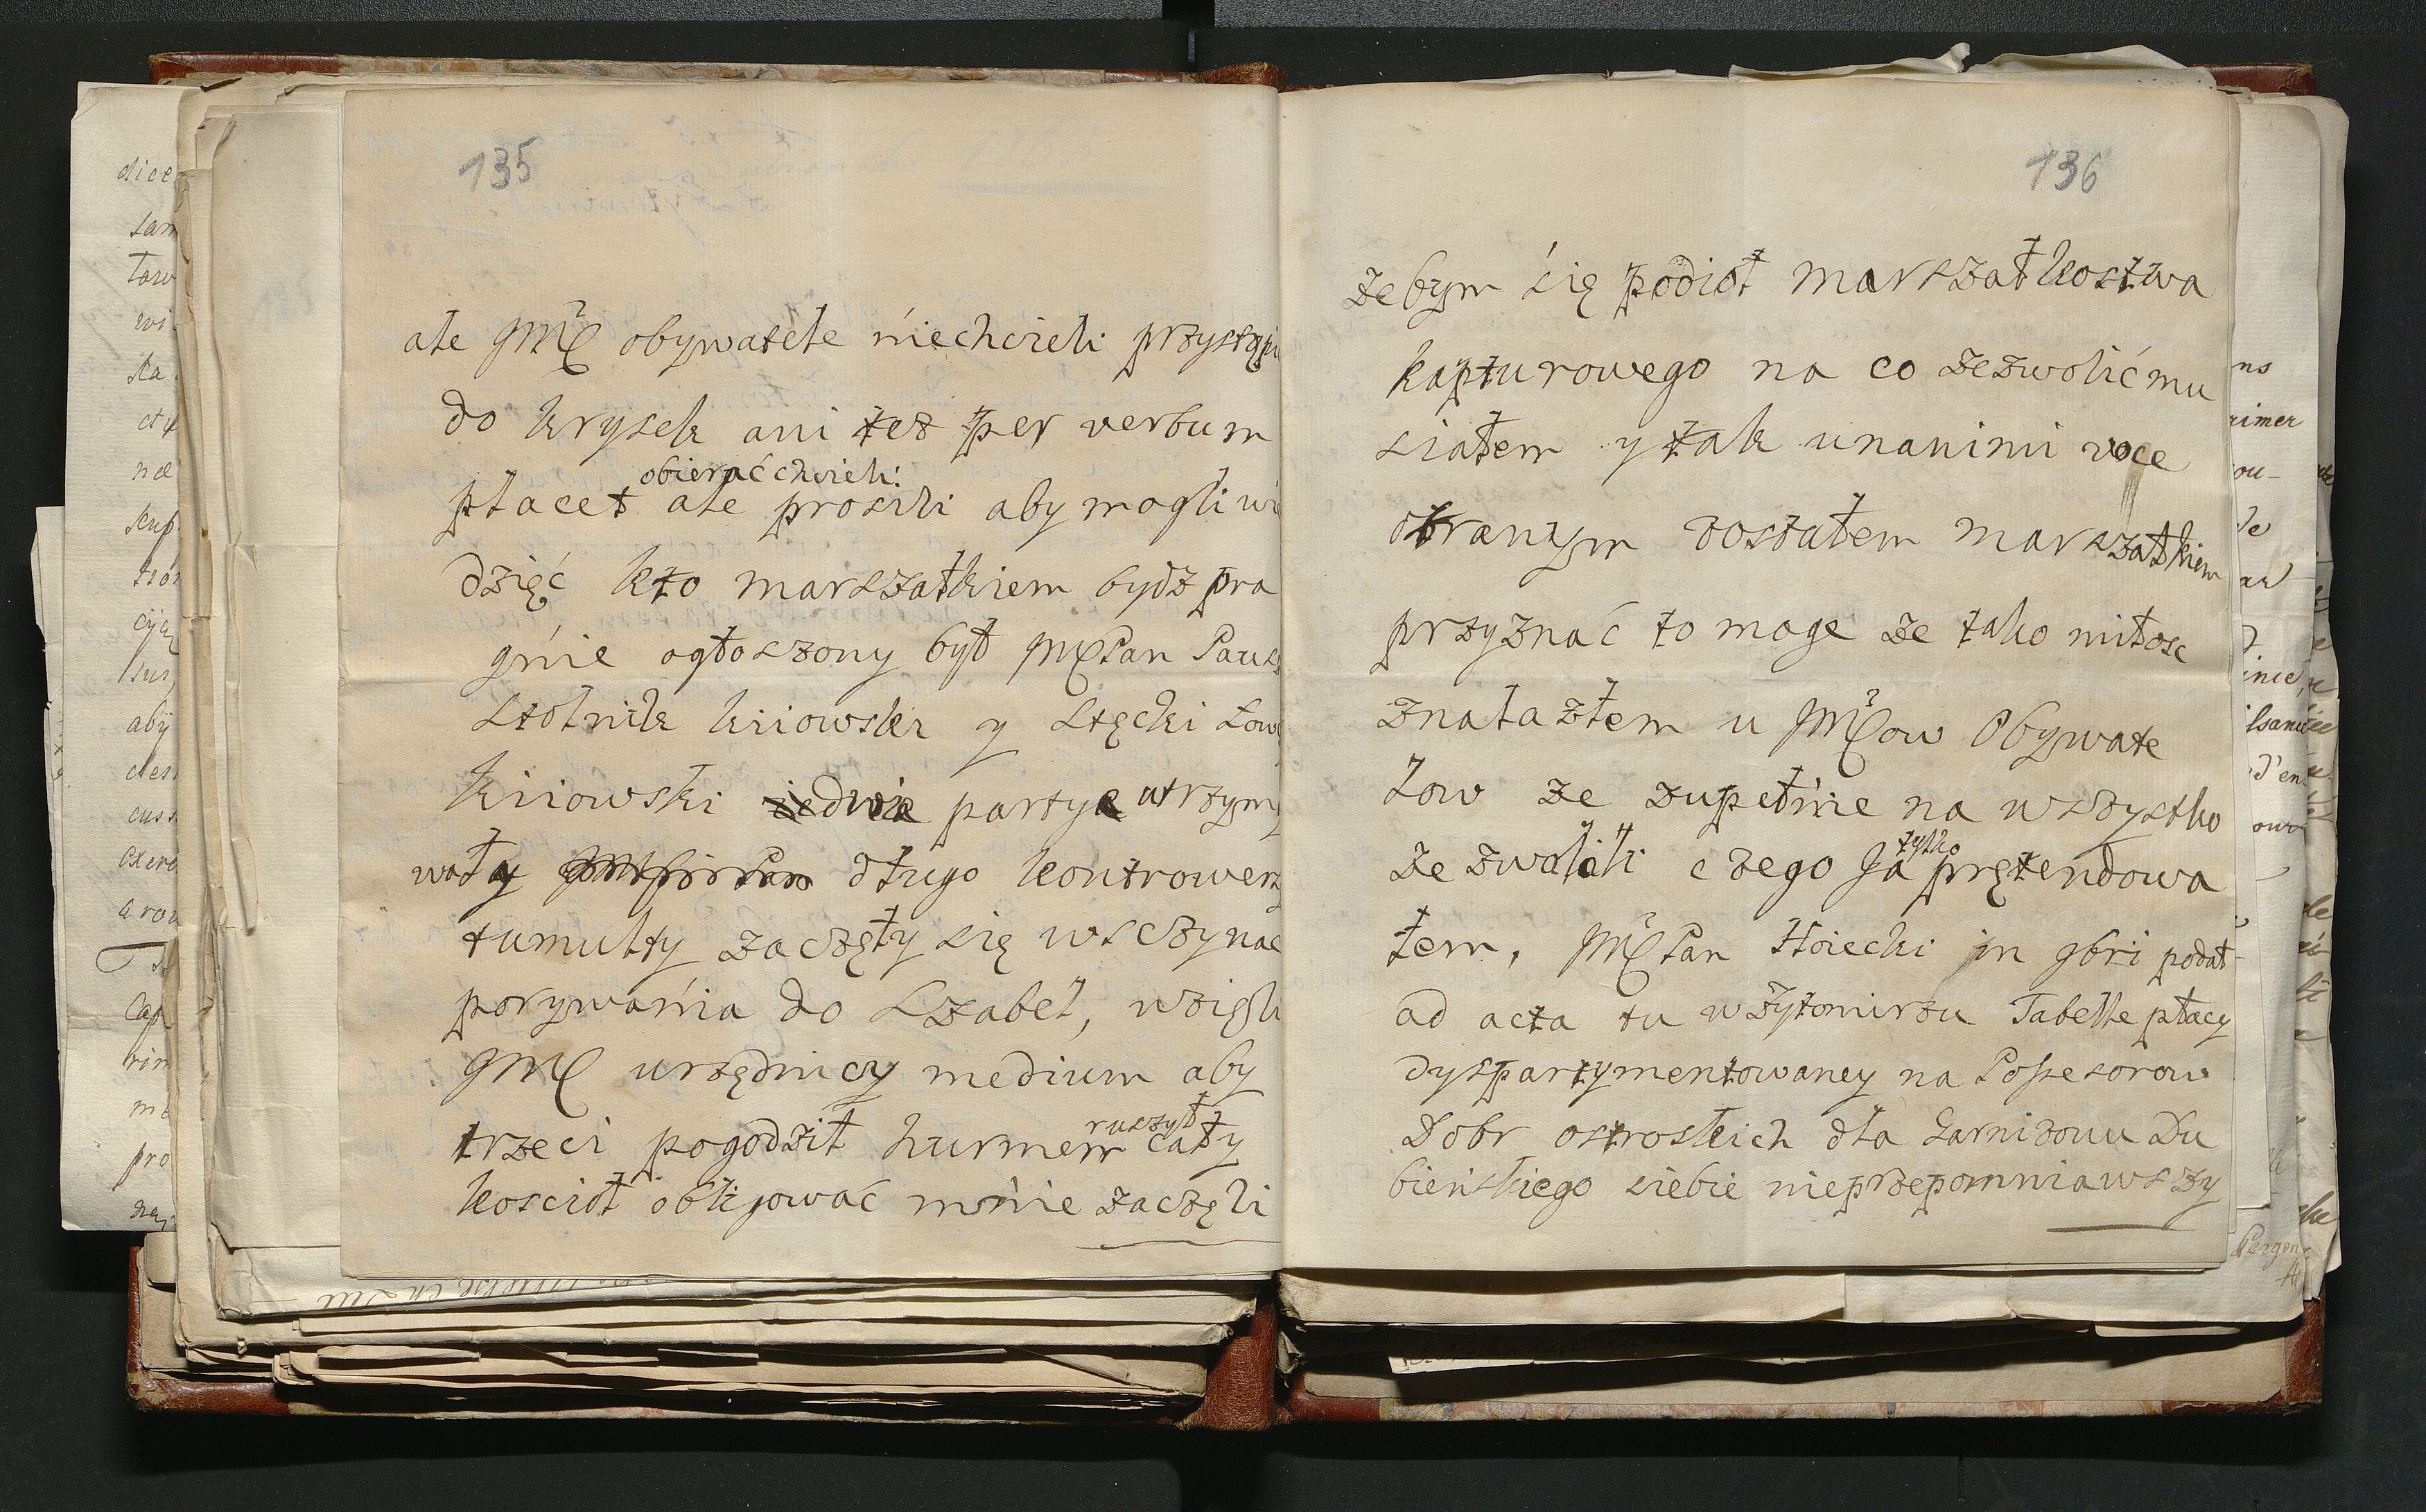 135
ale JMC obywatele niechcieli przystąpi
do krysek ani tez per verbum
placet obierać chcieli ale prosili aby mogli wi
dzięć kto marszałkiem bydz pra
gnie ogłoszony był JMC Pan Paus
stolnik kiiowski y Stęcki Łow
kiiowski dwie partye utrzym
wały długo kontrowers
tumulty zaczęły się wsczynac
porywania do szabel, wzieli
JMC urzędnicy medium aby
trzeci pogodził hurmem ruszył cały
kosciół obligować mnie zaczęli
136
zebym się podioł marszałkostwa
kapturowego na co zezwolić mu
siałem y tak unanimi voce
obranym zostałem marszałkiem
przyznać to moge ze tako miłosc
znalazłem u JMCow Obywate
low ze zupełnie na wszystko
ze zwolili czego Ja tylko prętendowa
łem, JMC Pan Hoiecki in gbri podał
ad acta tu w Zytomirzu Tabelle płacy
dyspartymentowaney na Possesorow
Dobr ostroskich dla Garnizonu Du
bienskiego siebie nieprzepomniawszy